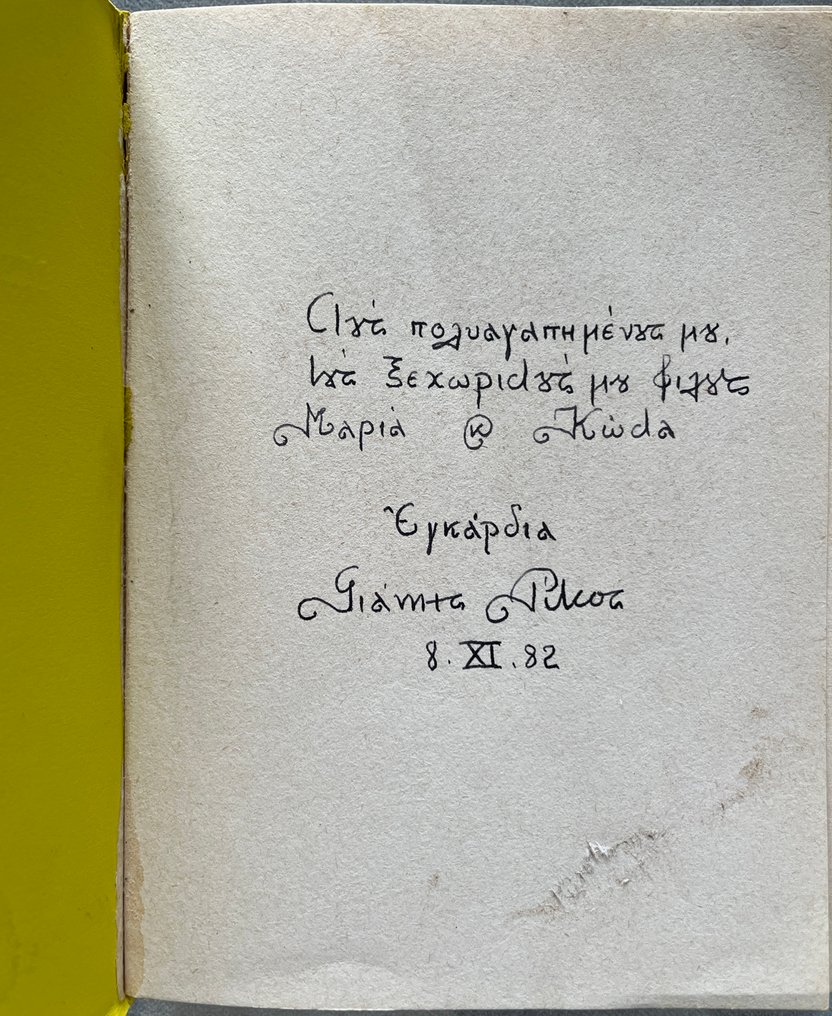 Στούς πολυαγαπημένους μου,
τούς ξεχωριστούς μου φίλους
Μαρία κ Κώστα
Ἐγκάρδια
Γιάννης Ρίτσος
8.XI.82